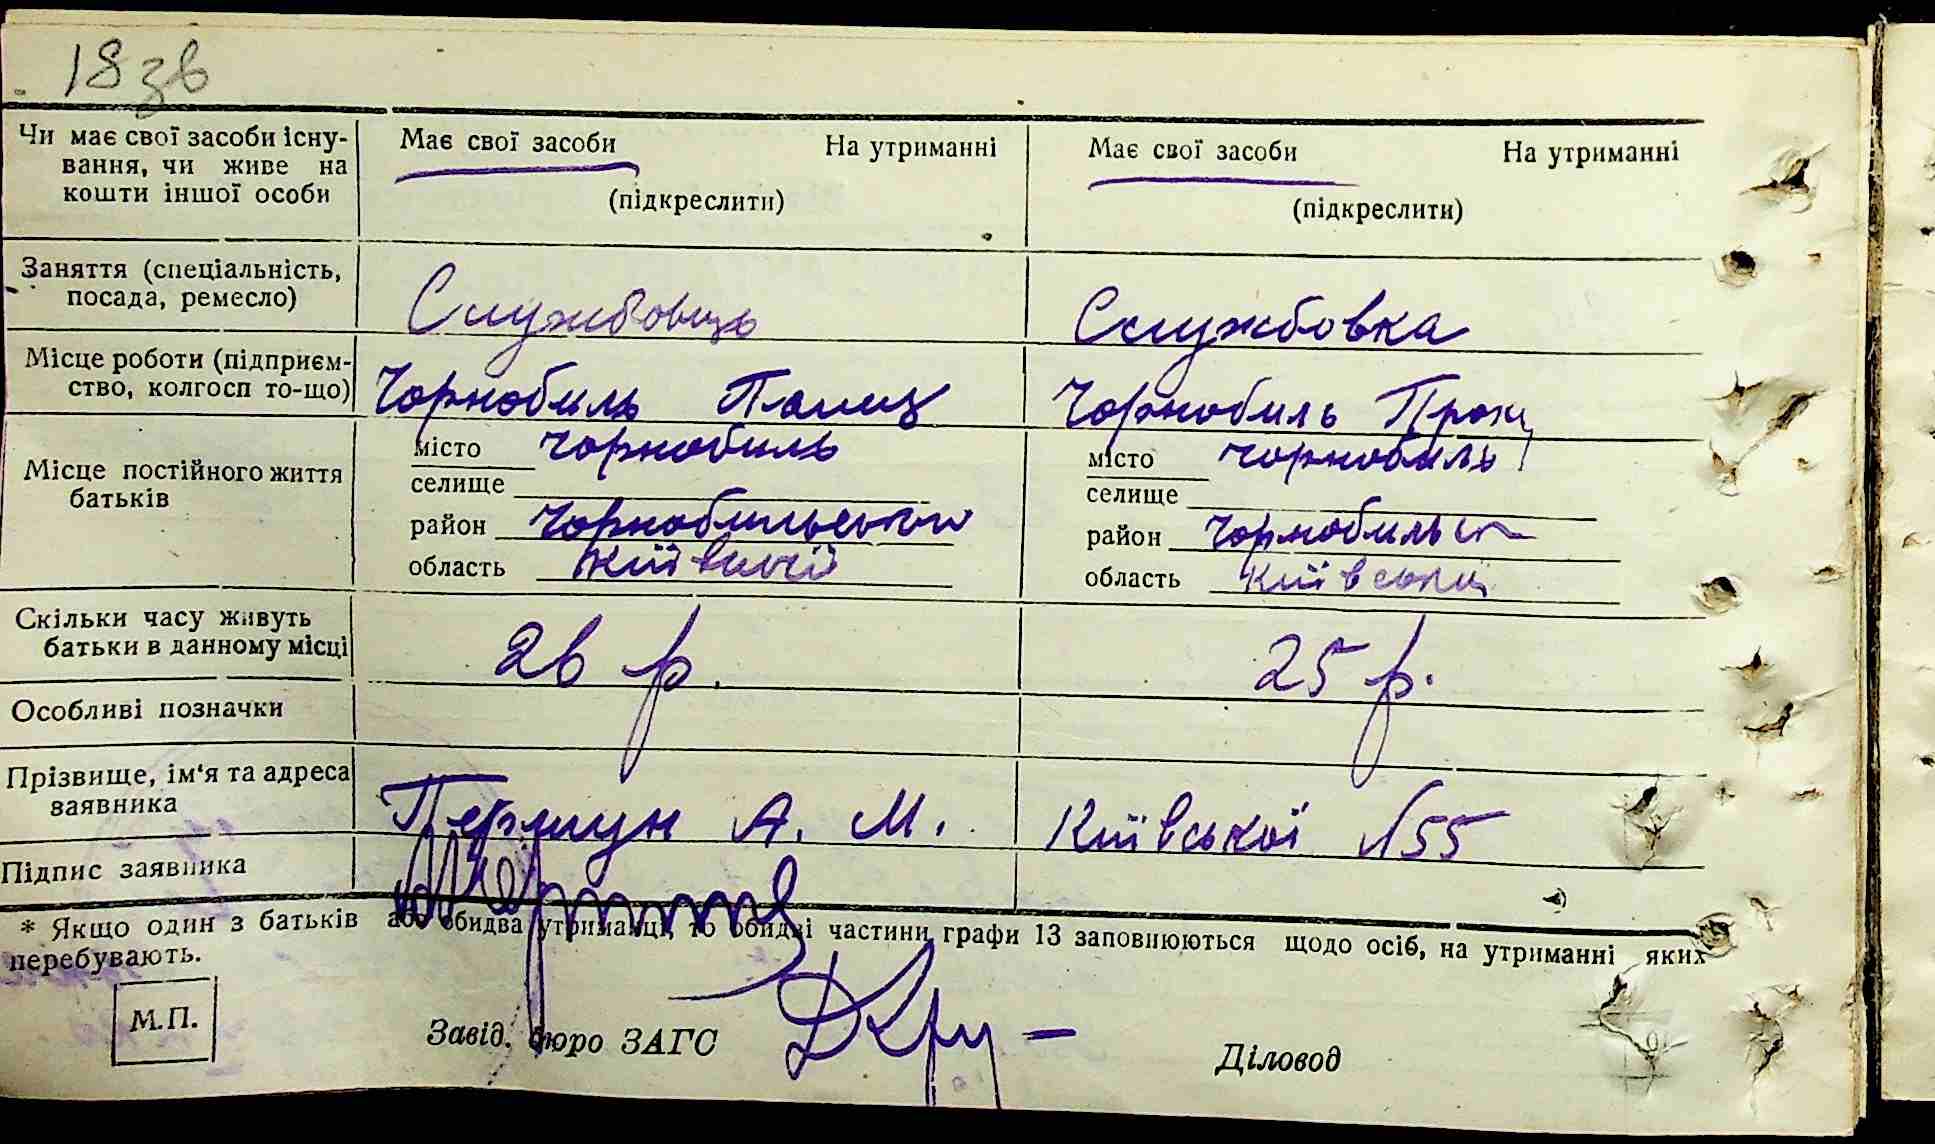 18 зв
Чи має свої засоби існу-
вання, чи живе на
кошти іншої особи
Має свої засоби На утриманні
(підкреслити)
Має свої засоби На утриманні
(підкреслити)
Заняття (спеціальність,
посада, ремесло)
Службовець
Службовка
Місце роботи (підприєм-
ство, колгосп то-що)
Чорнобиль
Чорнобиль
Місце постійного життя
батьків
місто Чорнобиль
селище
район Чорнобильського
область Київської
місто Чорнобиль
селище
район Чорнобильськ
область Київська
Скільки часу живуть
батьки в данному місці
26 р.
25 р.
Особливі позначки
Прізвище, ім'я та адреса
заявника
А. М.
Київської №55
Підпис заявника
* Якщо один з батьків або обидва утриманці, то обидві частини графи 13 заповнюються щодо осіб, на утриманні яких
перебувають.
М.П.
Завід. бюро ЗАГС
Діловод